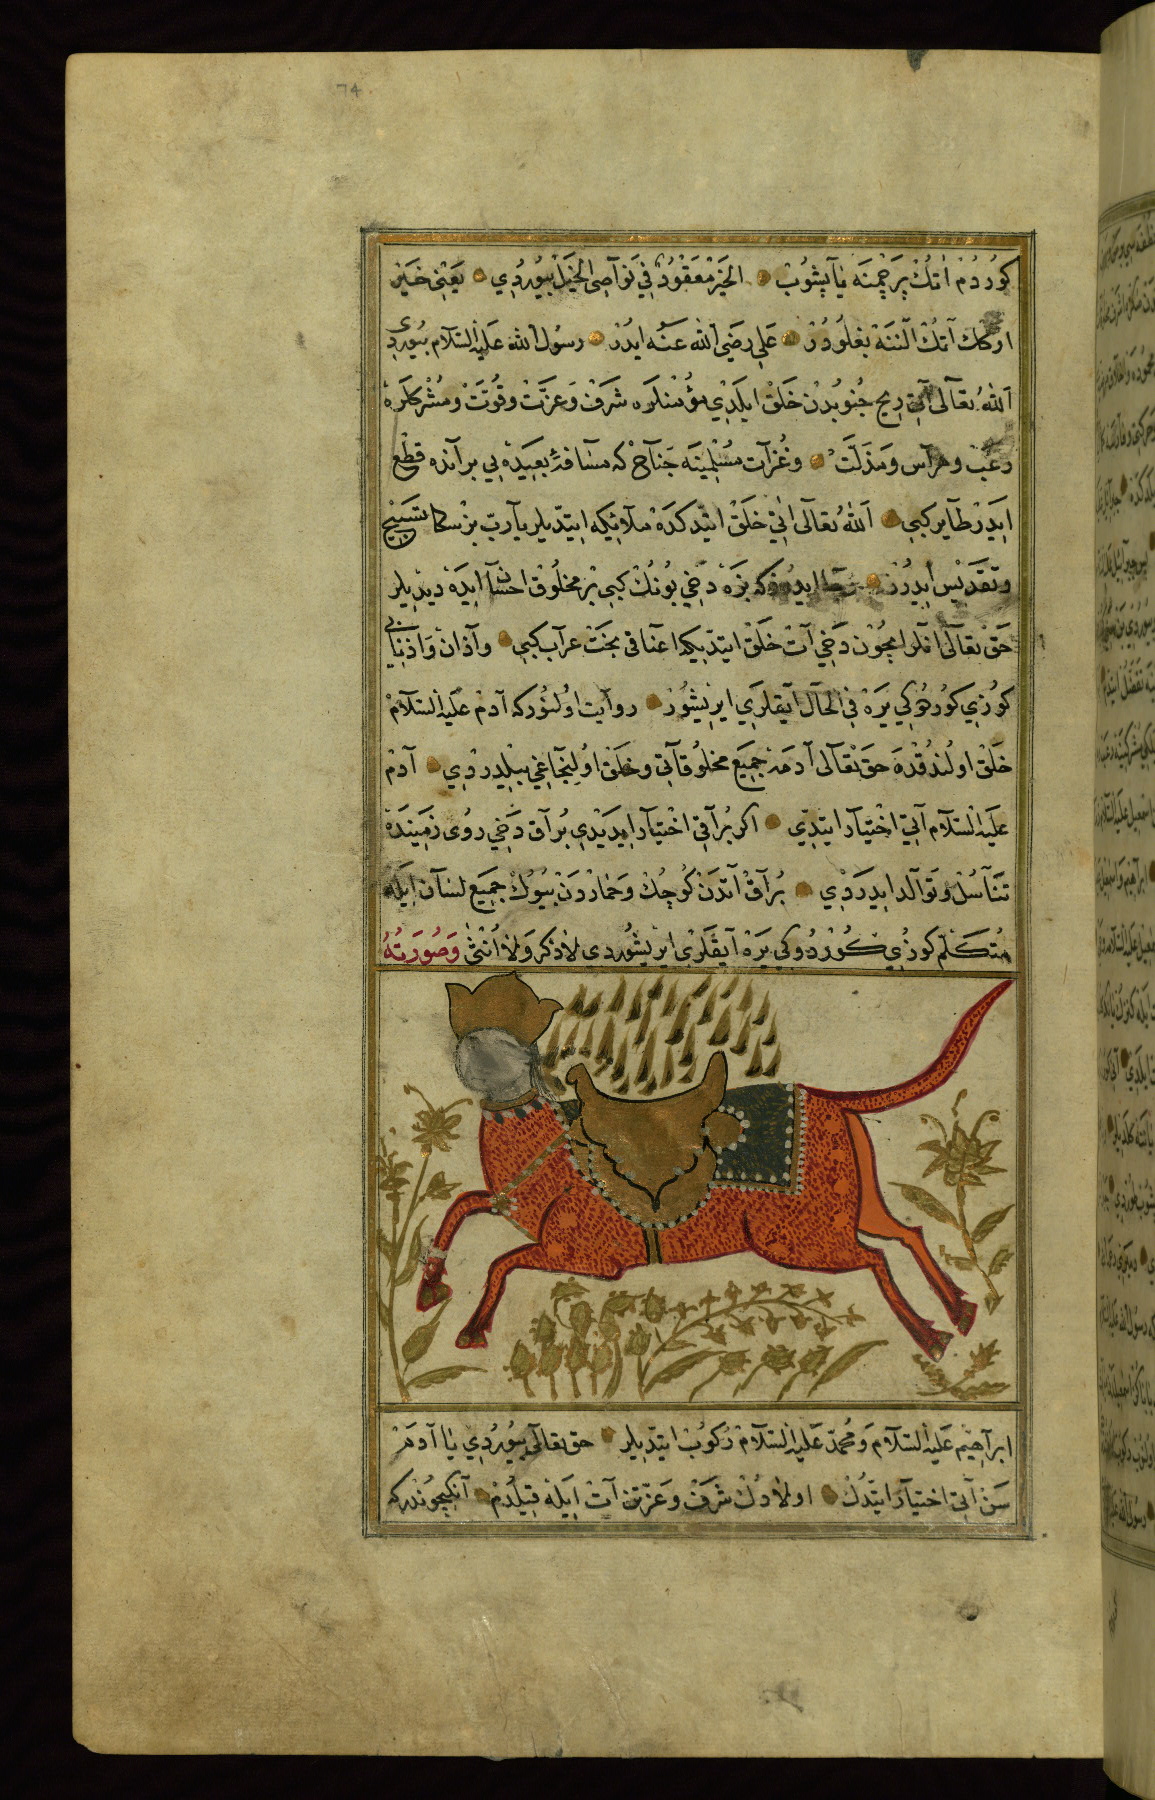 74
كوردم اتك پرچمنه ياپشوب الخير معقود في نواصي الخيل بيوردي يعني خير
آتك النه بغلودر علي رضي الله عنه ايدر رسول الله عليه السلام بيوردي
الله تعالى آتي ريح جنوبدن خلق ايلدي مؤمنلره شرف وعزت وقوت ومشركلره
رعب وهراس ومذلت وغزات مسلمينه جناح كه مسافۀ بعيده يي بر آنده قطع
ايدر طاير كبي الله تعالى اني خلق ايتدكده ملائيكه ايتديلر يا رب بز سكا تسبيح
وتقديس ايدرز كه بزه دخي بونك كبي بر مخلوق احسان ايده ديديلر
حق تعالى انلر ايچون دخي آت خلق ايتديكه اعناقي بخت عراب كبي وآذان
كوزي كوردوكي يره في الحال آيقلري ايريشور روايت اولنور كه آدم عليه السلام
خلق اولندقده حق تعالى آدمه جميع مخلوقاتي وخلق اولنجاغي بيلدردي آدم
عليه السلام آتي اختيار ايتدي اكر براقي اختيار ايديدي براق دخي روى زمينده
تناسل وتوالد ايدردي براق آتدن كوچك وخماردن بيوك جميع لسان ايله
متكلم كوزي كوزدوكي يره آيقلري ايريشوردي لا ذكر ولا انثى وصورته
ابراهيم عليه السلام ومحمد عليه السلام ركوب ايتديلر حق تعالى بيوردي يا آدم
سن آتي اختيار ايتدك اولادك شرف وعزتن آت ايله قيلدم آنكچوندركه